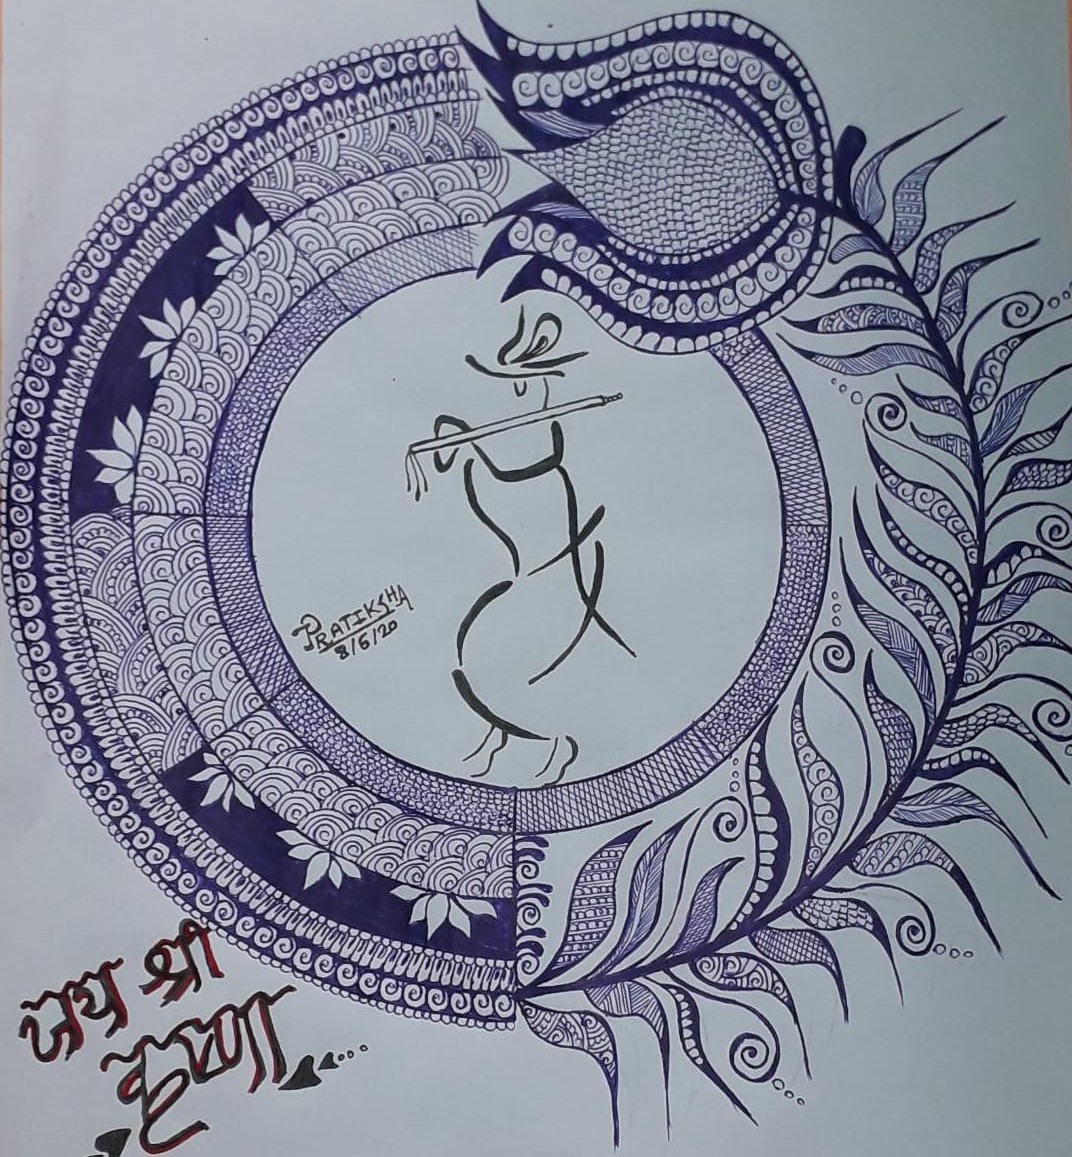 PRATIKSHA
8/6/20
जय श्री
कृष्णा